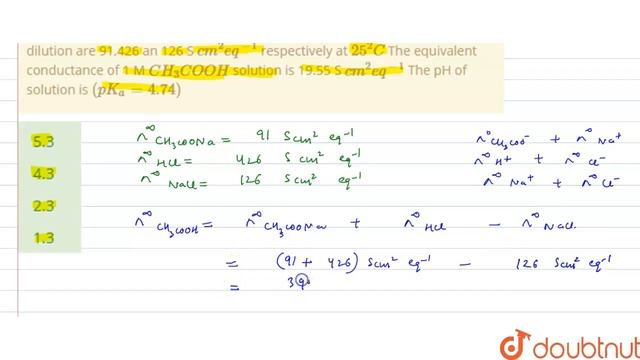 dilution are 91,426 an 126 S cm²eq⁻¹ respectively at 25²C The equivalent
conductance of 1 M CH₃COOH solution is 19.55 S cm²eq⁻¹ The pH of
solution is (pKₐ = 4.74)
5.3
4.3
2.3
1.3
Λ^∞ CH₃COONa = 91 S cm² eq⁻¹
Λ^∞ HCl = 426 S cm² eq⁻¹
Λ^∞ NaCl = 126 S cm² eq⁻¹
Λ° CH₃COO⁻ + Λ^∞ Na⁺
Λ^∞ H⁺ + Λ^∞ Cl⁻
Λ^∞ Na⁺ + Λ^∞ Cl⁻
Λ^∞ CH₃COOH = Λ^∞ CH₃COONa + Λ^∞ HCl - Λ^∞ NaCl.
= (91 + 426) S cm² eq⁻¹ - 126 S cm² eq⁻¹
= 39
doubtnut